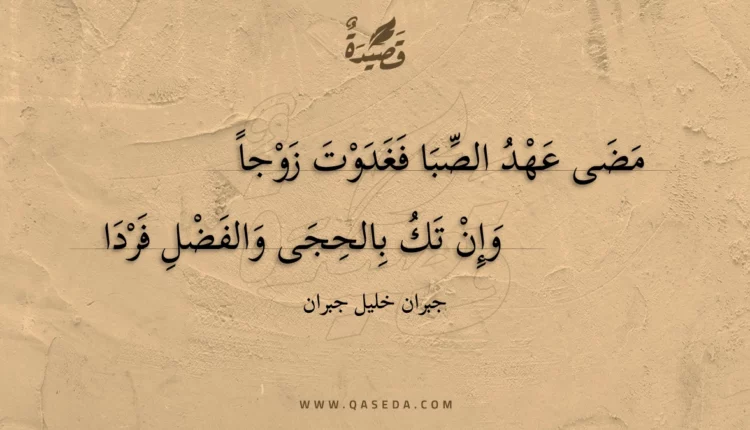 قَصِيْدَةٌ
مَضَى عَهْدُ الصِّبَا فَغَدَوْتَ زَوْجاً
وَإِنْ تَكُ بِالحِجَى وَالفَضْلِ فَرْدَا
جبران خليل جبران
WWW.QASEDA.COM